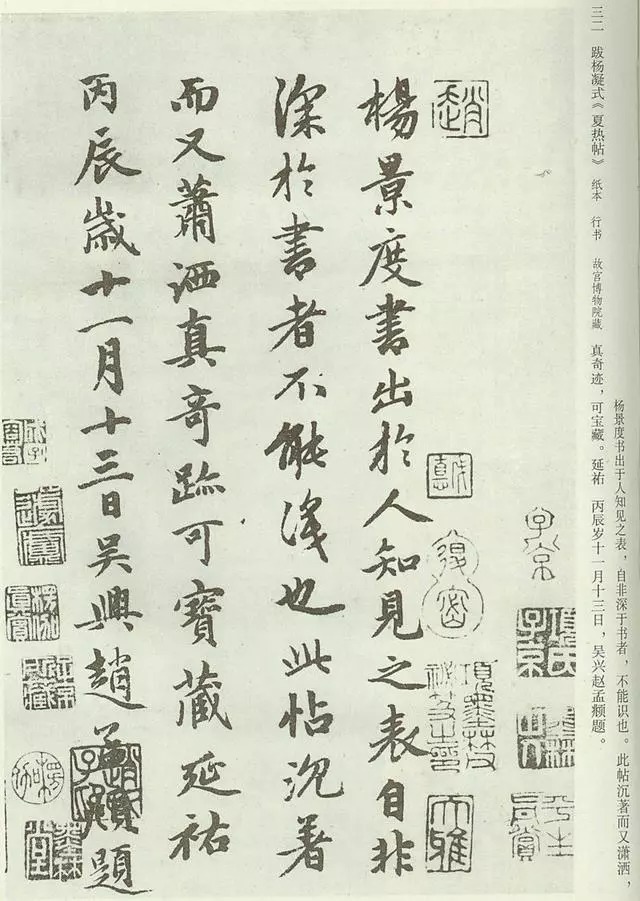 三二 跋杨凝式《夏热帖》 纸本 行书 故宫博物院藏
杨景度书出于人知见之表，自非深于书者，不能识也。此帖沉著而又潇洒，
真奇迹，可宝藏。延祐 丙辰岁十一月十三日，吴兴赵孟頫题。
楊景度書出於人知見之表自非
深於書者不能識也此帖沉著
而又蕭洒真奇跡可寶藏延祐
丙辰歲十一月十三日吳興趙孟頫題
趙
子京
大雅